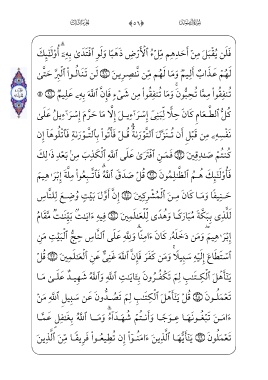 فَلَن يُقْبَلَ مِنْ أَحَدِهِم مِّلْءُ ٱلْأَرْضِ ذَهَبًا وَلَوِ ٱفْتَدَىٰ بِهِۦٓ أُو۟لَـٰٓئِكَ
لَهُمْ عَذَابٌ أَلِيمٌ وَمَا لَهُم مِّن نَّـٰصِرِينَ ۝ لَن تَنَالُوا۟ ٱلْبِرَّ حَتَّىٰ
تُنفِقُوا۟ مِمَّا تُحِبُّونَ وَمَا تُنفِقُوا۟ مِن شَىْءٍ فَإِنَّ ٱللَّهَ بِهِۦ عَلِيمٌ ۝ ۞
كُلُّ ٱلطَّعَامِ كَانَ حِلًّا لِّبَنِىٓ إِسْرَٰٓءِيلَ إِلَّا مَا حَرَّمَ إِسْرَٰٓءِيلُ عَلَىٰ
نَفْسِهِۦ مِن قَبْلِ أَن تُنَزَّلَ ٱلتَّوْرَىٰةُ قُلْ فَأْتُوا۟ بِٱلتَّوْرَىٰةِ فَٱتْلُوهَآ إِن
كُنتُمْ صَـٰدِقِينَ ۝ فَمَنِ ٱفْتَرَىٰ عَلَى ٱللَّهِ ٱلْكَذِبَ مِنۢ بَعْدِ ذَٰلِكَ
فَأُو۟لَـٰٓئِكَ هُمُ ٱلظَّـٰلِمُونَ ۝ قُلْ صَدَقَ ٱللَّهُ فَٱتَّبِعُوا۟ مِلَّةَ إِبْرَٰهِيمَ
حَنِيفًا وَمَا كَانَ مِنَ ٱلْمُشْرِكِينَ ۝ إِنَّ أَوَّلَ بَيْتٍ وُضِعَ لِلنَّاسِ
لَلَّذِى بِبَكَّةَ مُبَارَكًا وَهُدًى لِّلْعَـٰلَمِينَ ۝ فِيهِ ءَايَـٰتٌۢ بَيِّنَـٰتٌ مَّقَامُ
إِبْرَٰهِيمَ وَمَن دَخَلَهُۥ كَانَ ءَامِنًا وَلِلَّهِ عَلَى ٱلنَّاسِ حِجُّ ٱلْبَيْتِ مَنِ
ٱسْتَطَاعَ إِلَيْهِ سَبِيلًا وَمَن كَفَرَ فَإِنَّ ٱللَّهَ غَنِىٌّ عَنِ ٱلْعَـٰلَمِينَ ۝ قُلْ
يَـٰٓأَهْلَ ٱلْكِتَـٰبِ لِمَ تَكْفُرُونَ بِـَٔايَـٰتِ ٱللَّهِ وَٱللَّهُ شَهِيدٌ عَلَىٰ مَا
تَعْمَلُونَ ۝ قُلْ يَـٰٓأَهْلَ ٱلْكِتَـٰبِ لِمَ تَصُدُّونَ عَن سَبِيلِ ٱللَّهِ مَنْ
ءَامَنَ تَبْغُونَهَا عِوَجًا وَأَنتُمْ شُهَدَآءُ وَمَا ٱللَّهُ بِغَـٰفِلٍ عَمَّا
تَعْمَلُونَ ۝ يَـٰٓأَيُّهَا ٱلَّذِينَ ءَامَنُوٓا۟ إِن تُطِيعُوا۟ فَرِيقًا مِّنَ ٱلَّذِينَ